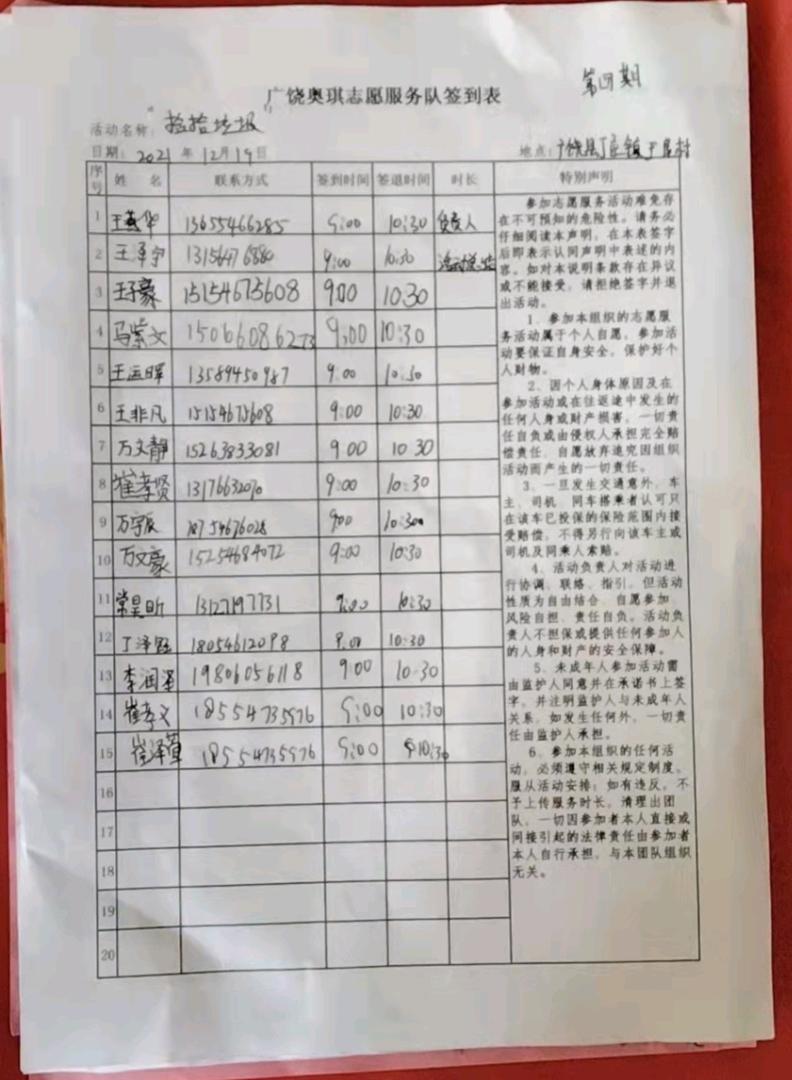 第四期
广饶奥琪志愿服务队签到表
活动名称：捡拾垃圾
日期：2021年12月19日 地点：广饶县丁庄镇
序号 姓 名 联系方式 签到时间 签退时间 时长 特别声明
1 王燕华 13655466285 9:00 10:30 负责人
2 王泽宇 13156476880 9:00 10:30
3 王子豪 15154675608 9:00 10:30
4 马紫文 15066086273 9:00 10:30
5 王运晖 13589450987 9:00 10:30
6 王非凡 15154675608 9:00 10:30
7 万文静 15263833081 9:00 10 30
8 崔孝贤 13176632070 9:00 10:30
9 万宇辰 18754676028 900 10:30
10 万文豪 15254684072 9:00 10:30
11 常昊昕 13127197731 9:00 10:30
12 丁泽钰 18054612098 9:00 10:30
13 李润泽 19806056118 9:00 10:30
14 崔孝文 18554735976 9:00 10:30
15 崔泽萱 18554735976 9:00 10:30
16
17
18
19
20
参加志愿服务活动难免存
在不可预知的危险性。请务必
仔细阅读本声明，在本表签字
后即表示认同声明中表述的内
容。如对本说明条款存在异议
或不能接受，请拒绝签字并退
出活动。
1、参加本组织的志愿服
务活动属于个人自愿，参加活
动要保证自身安全，保护好个
人财物。
2、因个人身体原因及在
参加活动或在往返途中发生的
任何人身或财产损害，一切责
任自负或由侵权人承担完全赔
偿责任，自愿放弃追究因组织
活动而产生的一切责任。
3、一旦发生交通意外，车
主、司机、同车搭乘者认可只
在该车已投保的保险范围内接
受赔偿，不得另行向该车主或
司机及同乘人索赔。
4、活动负责人对活动进
行协调、联络、指引，但活动
性质为自由结合、自愿参加、
风险自担、责任自负。活动负
责人不担保或提供任何参加人
的人身和财产的安全保障。
5、未成年人参加活动需
由监护人同意并在承诺书上签
字，并注明监护人与未成年人
关系，如发生任何外，一切责
任由监护人承担。
6、参加本组织的任何活
动，必须遵守相关规定制度，
服从活动安排；如有违反，不
予上传服务时长，清理出团
队，一切因参加者本人直接或
间接引起的法律责任由参加者
本人自行承担，与本团队组织
无关。